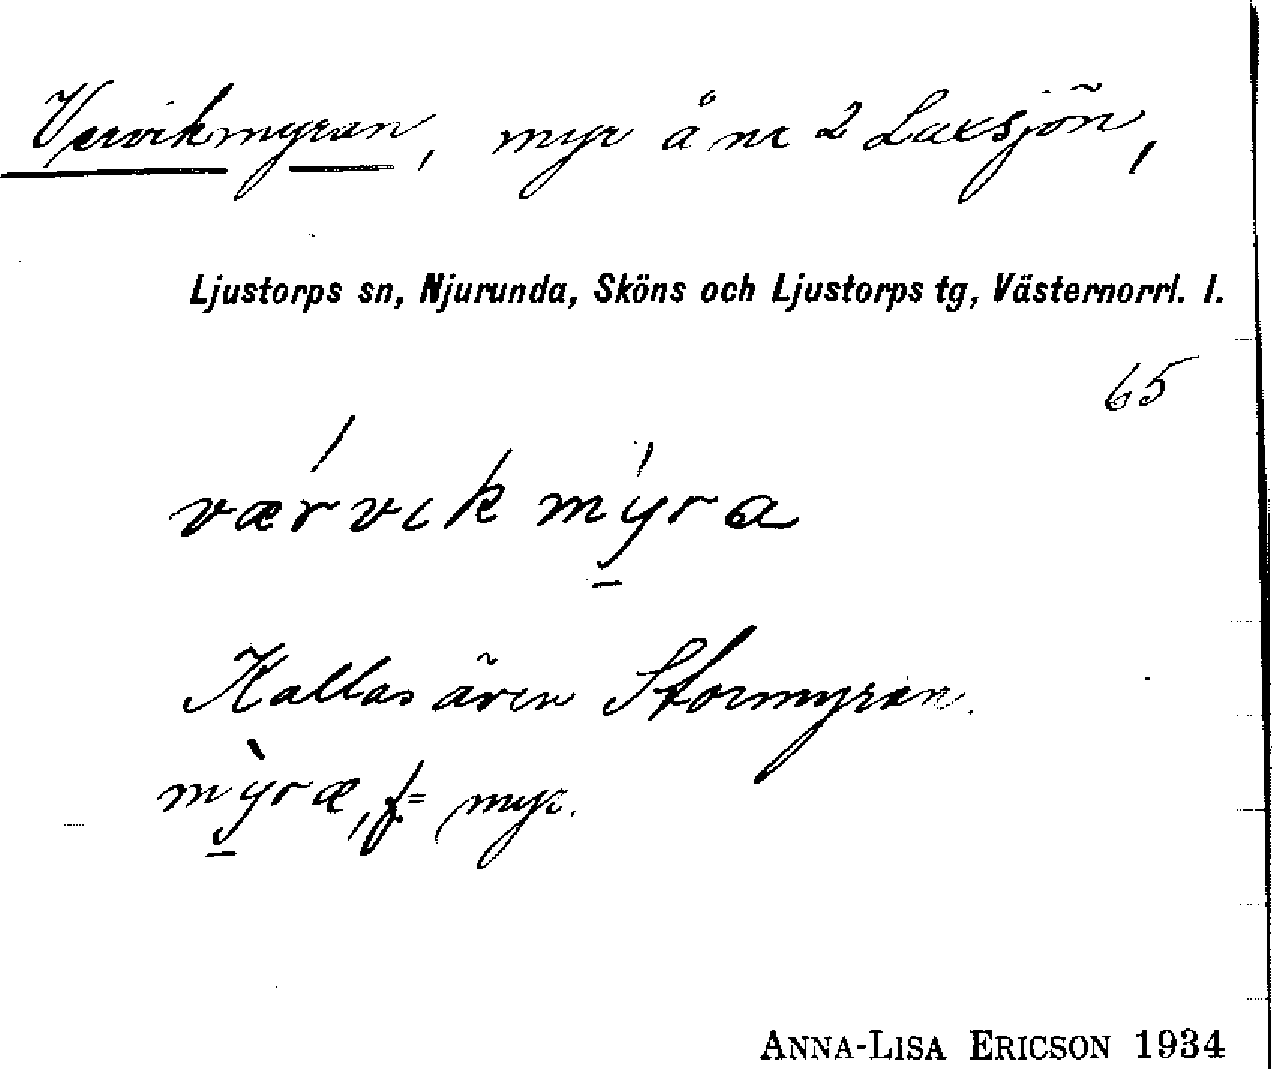 Vervikmyran, myr å nr 2 Laxsjön,
Ljustorps sn, Njurunda, Sköns och Ljustorps tg, Västernorrl. l.
65
værvik mýra
Kallas även Stormyran.
mỳræ, f = myr.
ANNA-LISA ERICSON 1934